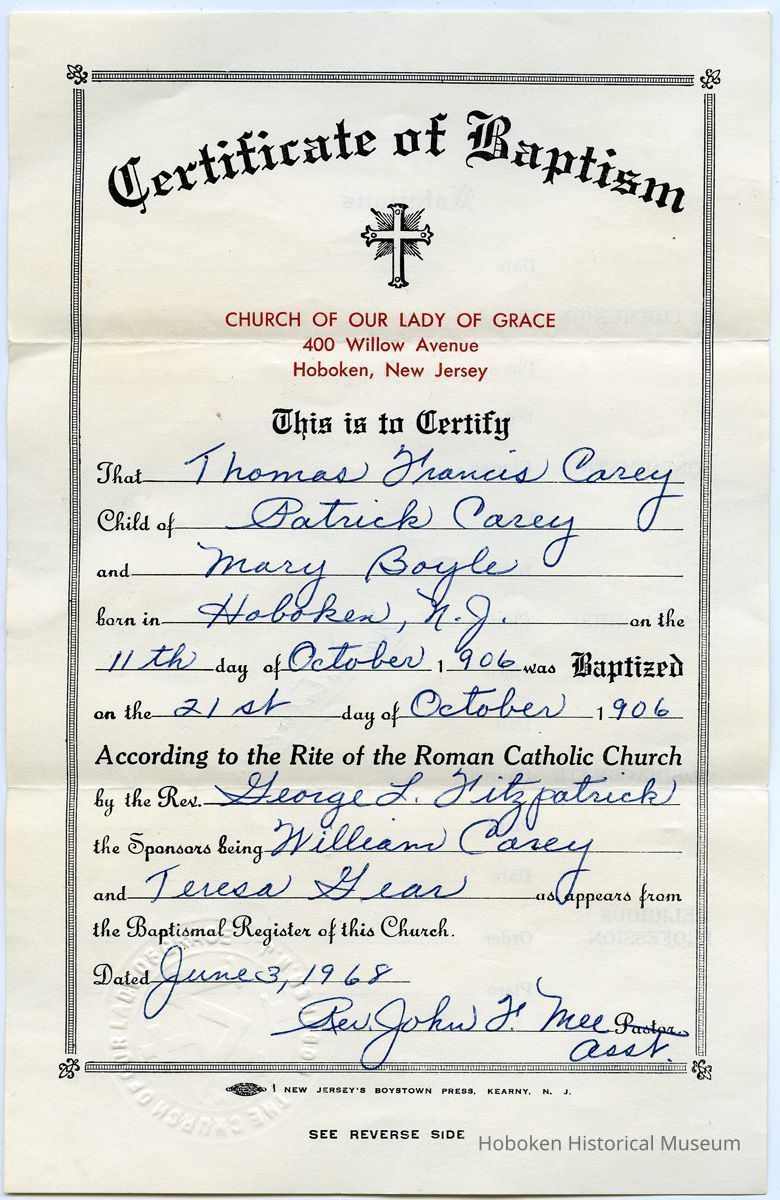 Certificate of Baptism
CHURCH OF OUR LADY OF GRACE
400 Willow Avenue
Hoboken, New Jersey
This is to Certify
That Thomas Francis Carey
Child of Patrick Carey
and Mary Boyle
born in Hoboken, N.J. on the
11th day of October 1906 was Baptized
on the 21st day of October 1906
According to the Rite of the Roman Catholic Church
by the Rev. George L. Fitzpatrick
the Sponsors being William Carey
and Teresa Gear as appears from
the Baptismal Register of this Church.
Dated June 3, 1968
Rev. John F. Mee Pastor
asst.
NEW JERSEY'S BOYSTOWN PRESS, KEARNY, N. J.
SEE REVERSE SIDE
Hoboken Historical Museum